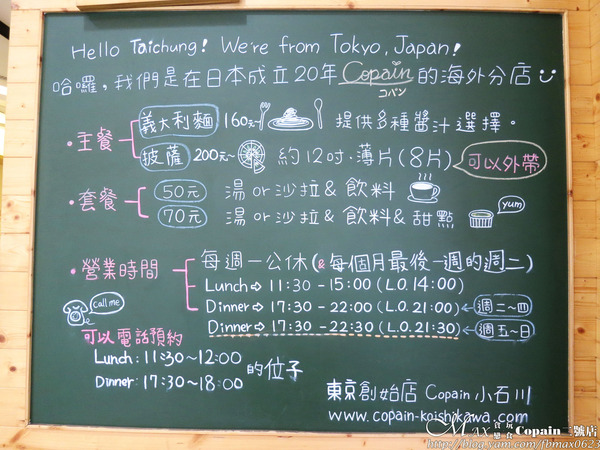 Hello Taichung! We're from Tokyo, Japan!
哈囉,我們是在日本成立20年Copain的海外分店
コパン
・主餐
義大利麵 160元~ 提供多種醬汁選擇。
披薩 200元~ 約12吋·薄片(8片) 可以外帶
・套餐
50元 湯or沙拉&飲料
70元 湯or沙拉&飲料&甜點 yum
・營業時間
每週一公休(&每個月最後一週的週二)
Lunch⇨11:30-15:00(L.O.14:00)
Dinner⇨17:30-22:00(L.O.21:00)←週二~四
Dinner⇨17:30-22:30(L.O.21:30)←週五~日
call me
可以電話預約
Lunch:11:30~12:00
Dinner:17:30~18:00
的位子
東京創始店 Copain 小石川
www.copain-koishikawa.com
MAX 食玩戀食 Copain二號店
http://blog.yam.com/fbmax0623